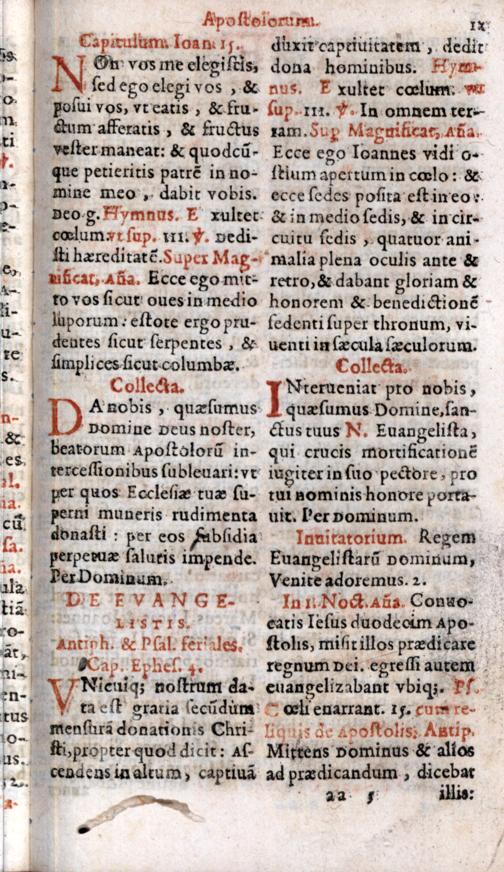 Apostolorum.
ix
Capitulum. Ioan. 15.
NOn vos me elegistis,
sed ego elegi vos , &
posui vos, vt eatis , & fru-
ctum afferatis , & fructus
vester maneat: & quodcū-
que petieritis patrē in no-
mine meo , dabit vobis.
Deo g. Hymnus. E xultet
cœlum. vt sup. III. ℣. Dedi-
sti hæreditatē. Super Mag-
nificat, Aña. Ecce ego mit-
to vos sicut oues in medio
luporum : estote ergo pru-
dentes sicut serpentes , &
simplices sicut columbæ.
Collecta.
DA nobis , quæsumus
Domine Deus noster,
beatorum Apostolorū in-
tercessionibus subleuari: vt
per quos Ecclesiæ tuæ su-
perni muneris rudimenta
donasti : per eos subsidia
perpetuæ salutis impende.
Per Dominum.
DE EVANGE-
LISTIS.
Antiph. & Psal. feriales.
Cap. Ephes. 4.
VNicuiq; nostrum da-
ta est gratia secūdum
mensurā donationis Chri-
sti, propter quod dicit : As-
cendens in altum , captiuā
duxit captiuitatem , dedit
dona hominibus. Hym-
nus. E xultet cœlum. vt
sup. III. ℣. In omnem ter-
ram. Sup Magnificat, Aña.
Ecce ego Ioannes vidi o-
stium apertum in cœlo : &
ecce sedes posita est in eo :
& in medio sedis, & in cir-
cuitu sedis , quatuor ani-
malia plena oculis ante &
retro, & dabant gloriam &
honorem & benedictionē
sedenti super thronum, vi-
uenti in sæcula sæculorum.
Collecta.
INterueniat pro nobis ,
quæsumus Domine, san-
ctus tuus N. Euangelista,
qui crucis mortificationē
iugiter in suo pectore, pro
tui nominis honore porta-
uit. Per Dominum.
Inuitatorium. Regem
Euangelistarū Dominum,
Venite adoremus. 2.
In 1. Noct. Aña. Conuo-
catis Iesus duodecim Apo-
stolis, misit illos prædicare
regnum Dei. egressi autem
euangelizabant vbiq;. Ps.
Cœli enarrant. 15. cum re-
liquis de Apostolis. Antip.
Mittens Dominus & alios
ad prædicandum , dicebat
aa 5 illis: